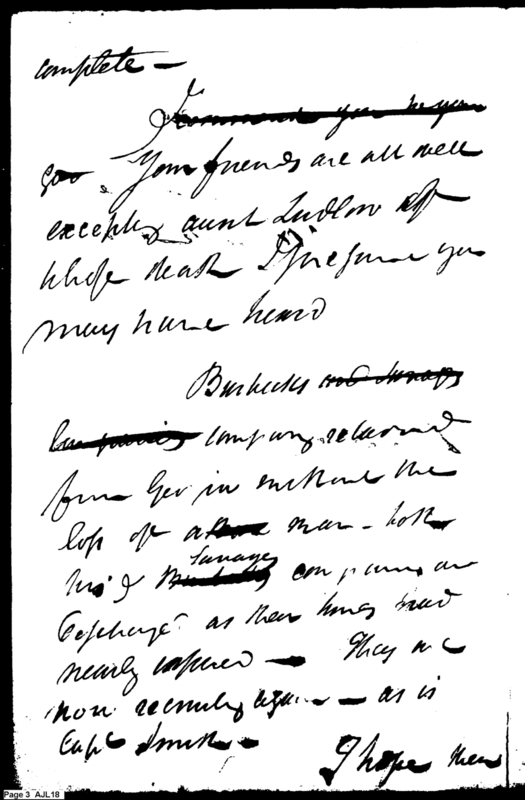 complete —
I commend you to your
Gov. Your friends are all well
excepting aunt Ludlow of
whose death I presume you
may have heard
Burbecks and Savages
Companies company returned
from Geo in without the
loss of a man - both
his & Burbecks Savages company are
discharged as their times had
nearly expired — They are
now recruiting again — as is
Capt Smith -
I hope
Page 3 AJL18